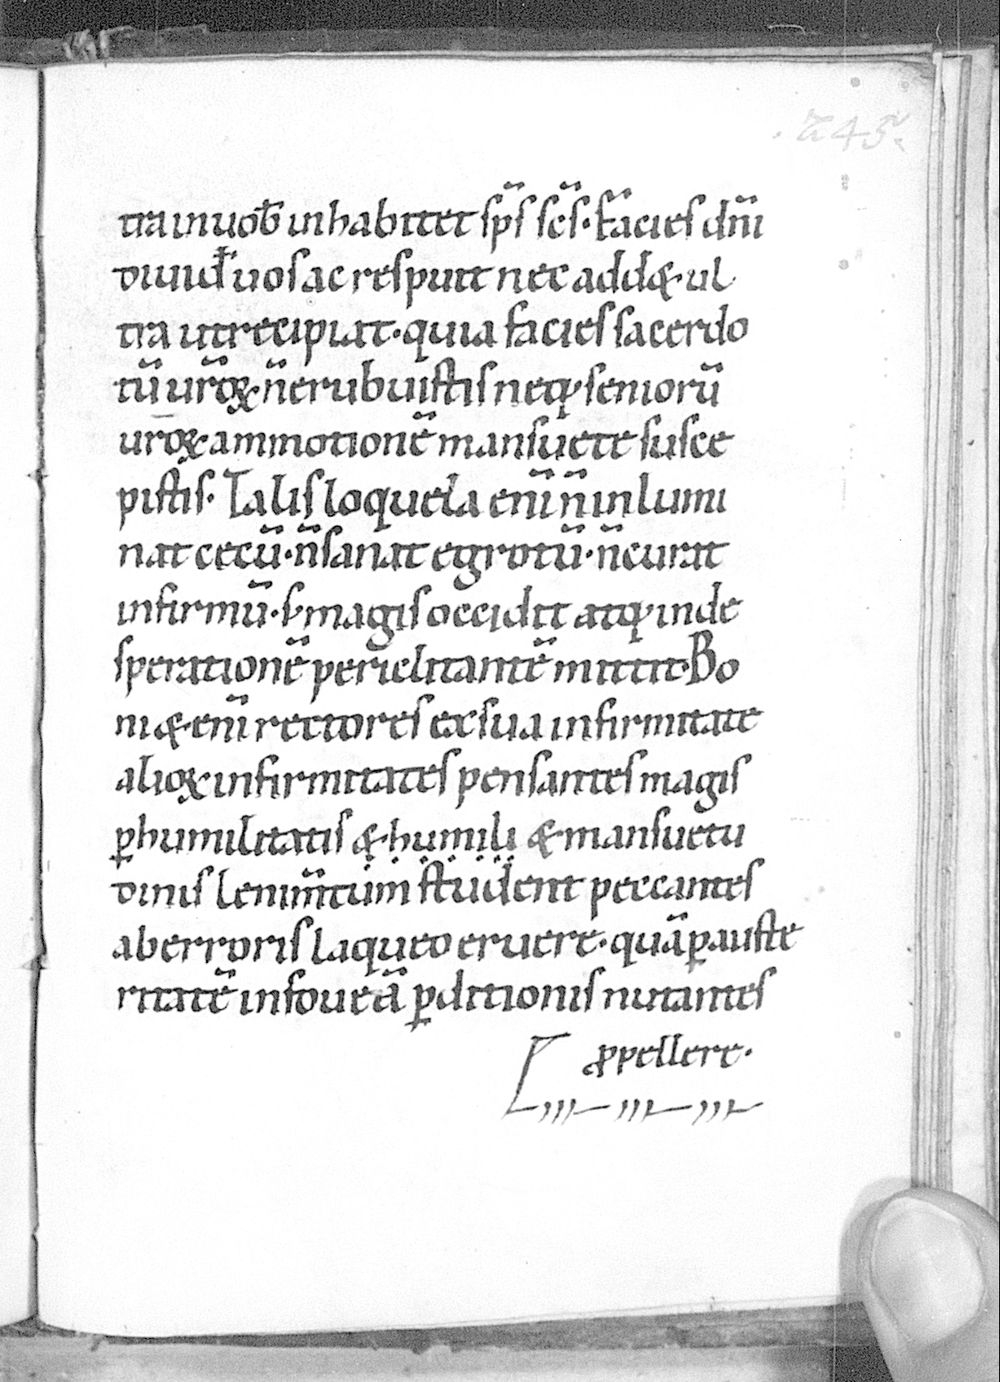 .245.
tra in uob̄ inhabitet sp̄s sc̄s· Facies dn̄i
diuid̄ uos ac respuit nec add&· ul
tra ut recipiat· quia facies sacerdo
tū ur̄oꝝ n̄ erubuistis neq; senioru̅
ur̄oꝝ ammotionē mansuete susce
pistis· Talis loquela enī n̄ inlumi
nat cecū· n̄ sanat egrotū· n̄ curat
infirmū· s; magis occidit atq; inde
sperationē perielitantē mittit· Bo
ni &enī rectores ex sua infirmitate
alioꝝ infirmitates pensantes magis
ꝑ humilitatis & humili & mansuetu
dinis lenim̄tum student peccantes
ab erroris laqueo eruere· quā ꝑ auste
ritatē in foueā ꝑditionis nutantes
ꝓpellere·